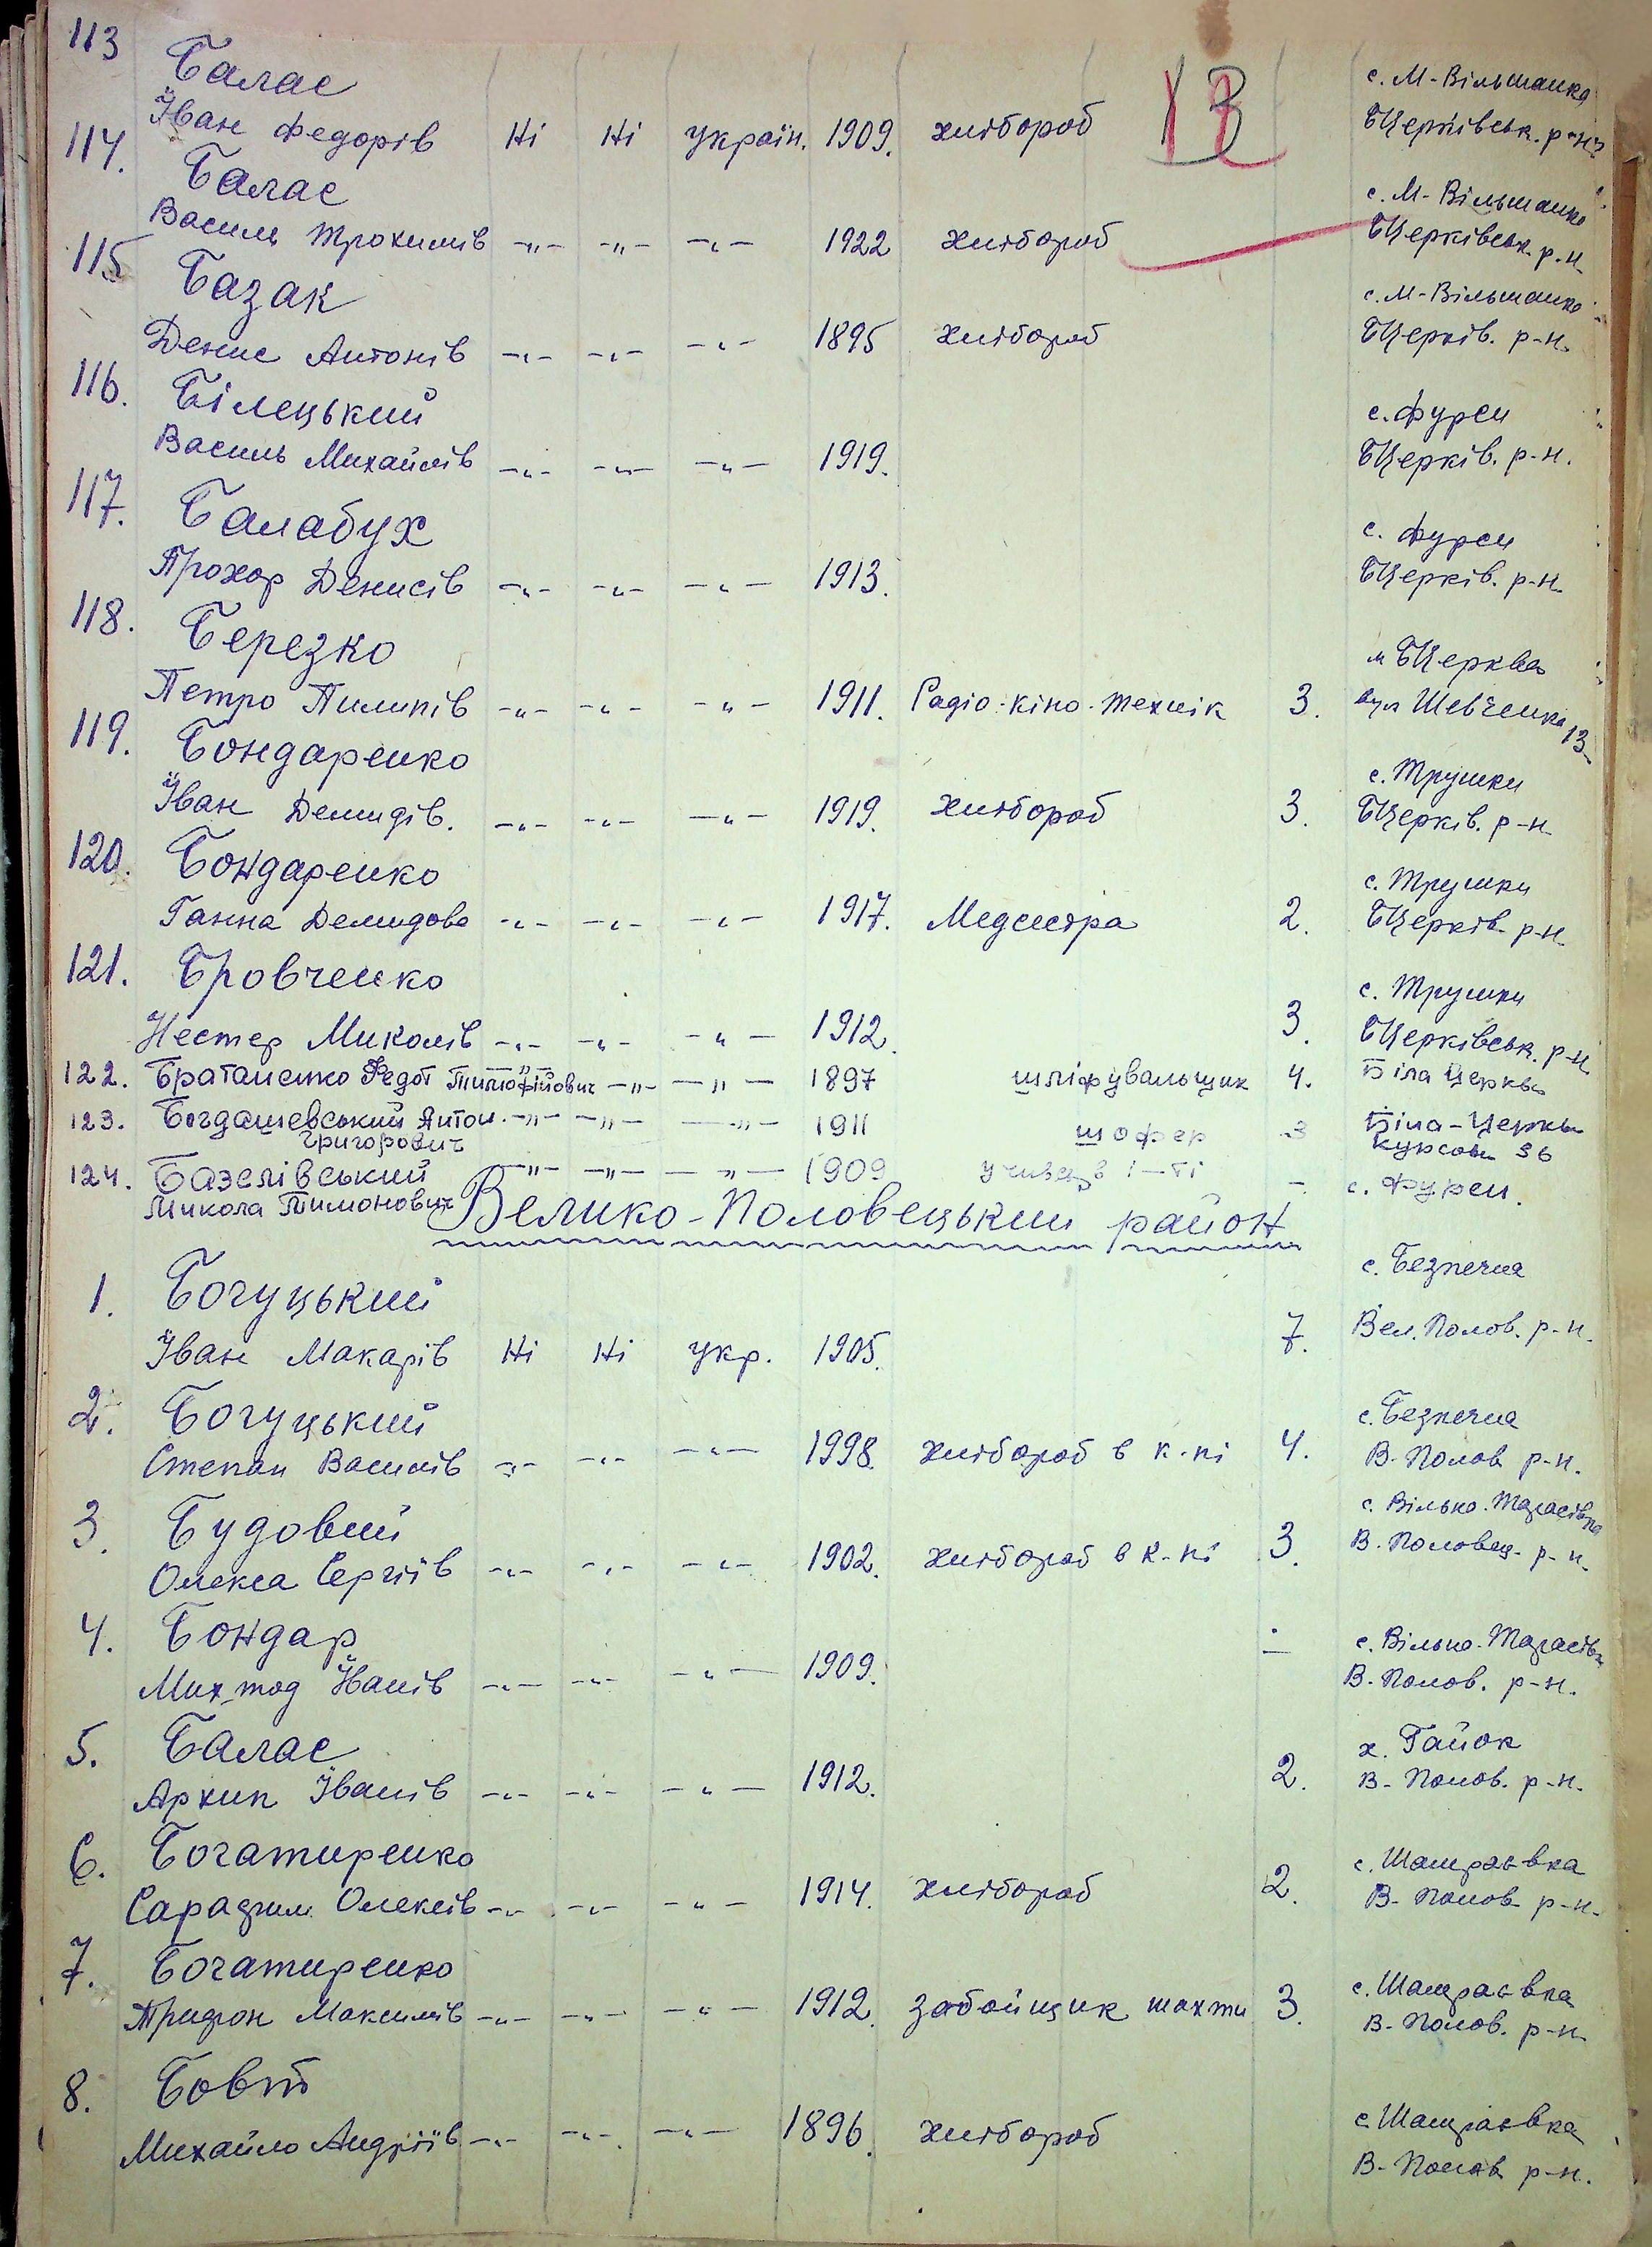 113 Балас
Іван Федорів Ні Ні україн. 1909. хлібороб 13 с. М-Вільшанка
БЦерківськ. р-н
114. Балас
Василь Трохимів -„- -„- -„- 1922 хлібороб с. М-Вільшанка
БЦерківськ. р-н
115 Базак
Денис Антонів -„- -„- -„- 1895 хлібороб с. М-Вільшанка
БЦерків. р-н.
116. Білецький
Василь Михайлів -„- -„- -„- 1919. с. Фурси
БЦерків. р-н.
117. Балабух
Прохор Денисів -„- -„- -„- 1913. с. Фурси
БЦерків. р-н.
118. Березко
Петро Пилипів -„- -„- -„- 1911. Радіо-кіно-технік 3. м БЦерква
вул Шевченка 13
119. Бондаренко
Іван Демидів. -„- -„- -„- 1919. хлібороб 3. с. Трушки
БЦерків. р-н
120. Бондаренко
Ганна Демидова -„- -„- -„- 1917. Медсестра 2. с. Трушки
БЦерків р-н
121. Бровченко
Нестер Миколів -„- -„- -„- 1912. 3. с. Трушки
БЦерківськ. р-н
122. Братаненко Федот Тимофійович -„- -„- 1897 шліфувальщик 4. Біла Церква
123. Богдашевський Антон -„- -„- -„- 1911 шофер 3 Біла-Церква
Григорович Курсова 36
124. Базелівський -„- -„- -„- 1909 - с. Фурси.
Микола Тимонович
Велико-Половецький район
1. Богуцький
Іван Макарів Ні Ні укр. 1905. 7. с. Безпечна
Вел. Полов. р-н.
2. Богуцький
Степан Василів -„- -„- -„- 1998. хлібороб в к-пі 4. с. Безпечна
В-Полов р-н.
3. Будовий
Олекса Сергіїв -„- -„- -„- 1902. хлібороб в к-пі 3. с. Вільна-Тарасівка
В. Половец. р-н.
4. Бондар
Іванів -„- -„- -„- 1909. - с. Вільна-Тарасівка
В. Полов. р-н.
5. Балас
Архип Іванів -„- -„- -„- 1912. 2. х. Гайок
В-Полов. р-н.
6. Богатиренко
Сарафим Олексів -„- -„- -„- 1914. хлібороб 2. с. Шамраєвка
В-Полов р-н.
7. Богатиренко
Трифон Максимів -„- -„- -„- 1912. забойщик шахти 3. с. Шамраєвка
В-Полов. р-н.
8. Бовт
Михайло Андріїв -„- -„- -„- 1896. хлібороб с. Шамраєвка
В-Полов р-н.